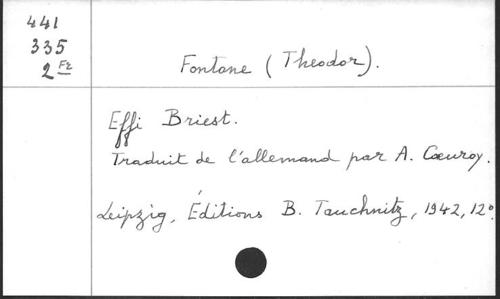 441
335
2 Fr
Fontane (Theodor).
Effi Briest.
Traduit de l'allemand par A. Cœuroy.
Leipzig, Éditions B. Tauchnitz, 1942, 12°.